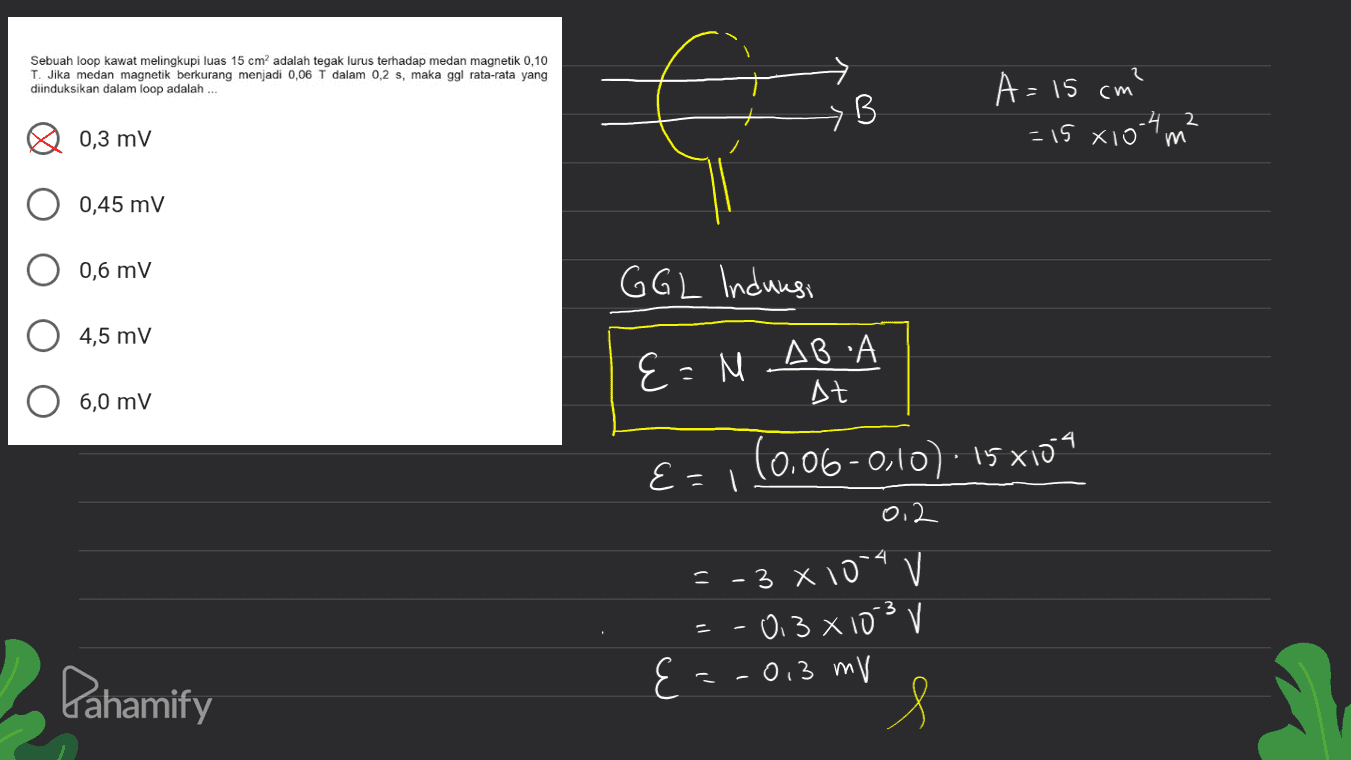 Sebuah loop kawat melingkupi luas 15 cm² adalah tegak lurus terhadap medan magnetik 0,10
T. Jika medan magnetik berkurang menjadi 0,06 T dalam 0,2 s, maka ggl rata-rata yang
diinduksikan dalam loop adalah ...
0,3 mV
0,45 mV
0,6 mV
4,5 mV
6,0 mV
B
A = 15 cm²
= 15 x10⁻⁴ m²
GGL Induksi
ε = N ΔB · A / Δt
ε = 1 (0,06 - 0,10) · 15 x10⁻⁴ / 0,2
= -3 x 10⁻⁴ V
= -0,3 x 10⁻³ V
ε = -0,3 mV
Pahamify